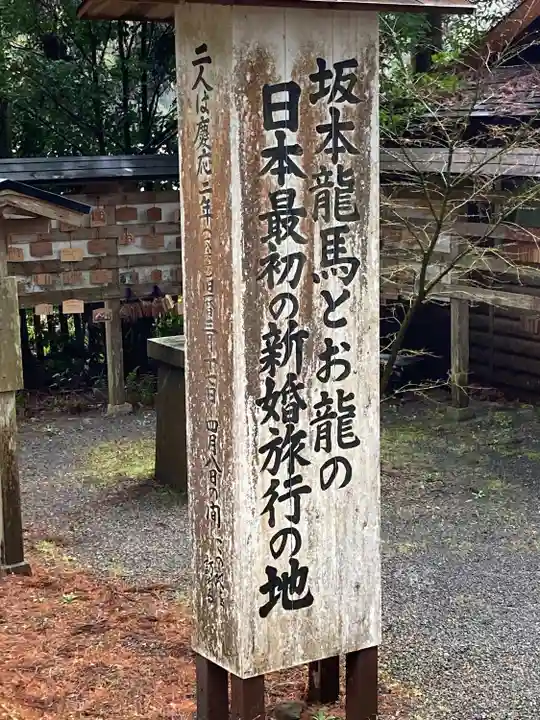 坂本龍馬とお龍の
日本最初の新婚旅行の地
二人は慶応二年
四月八日の間